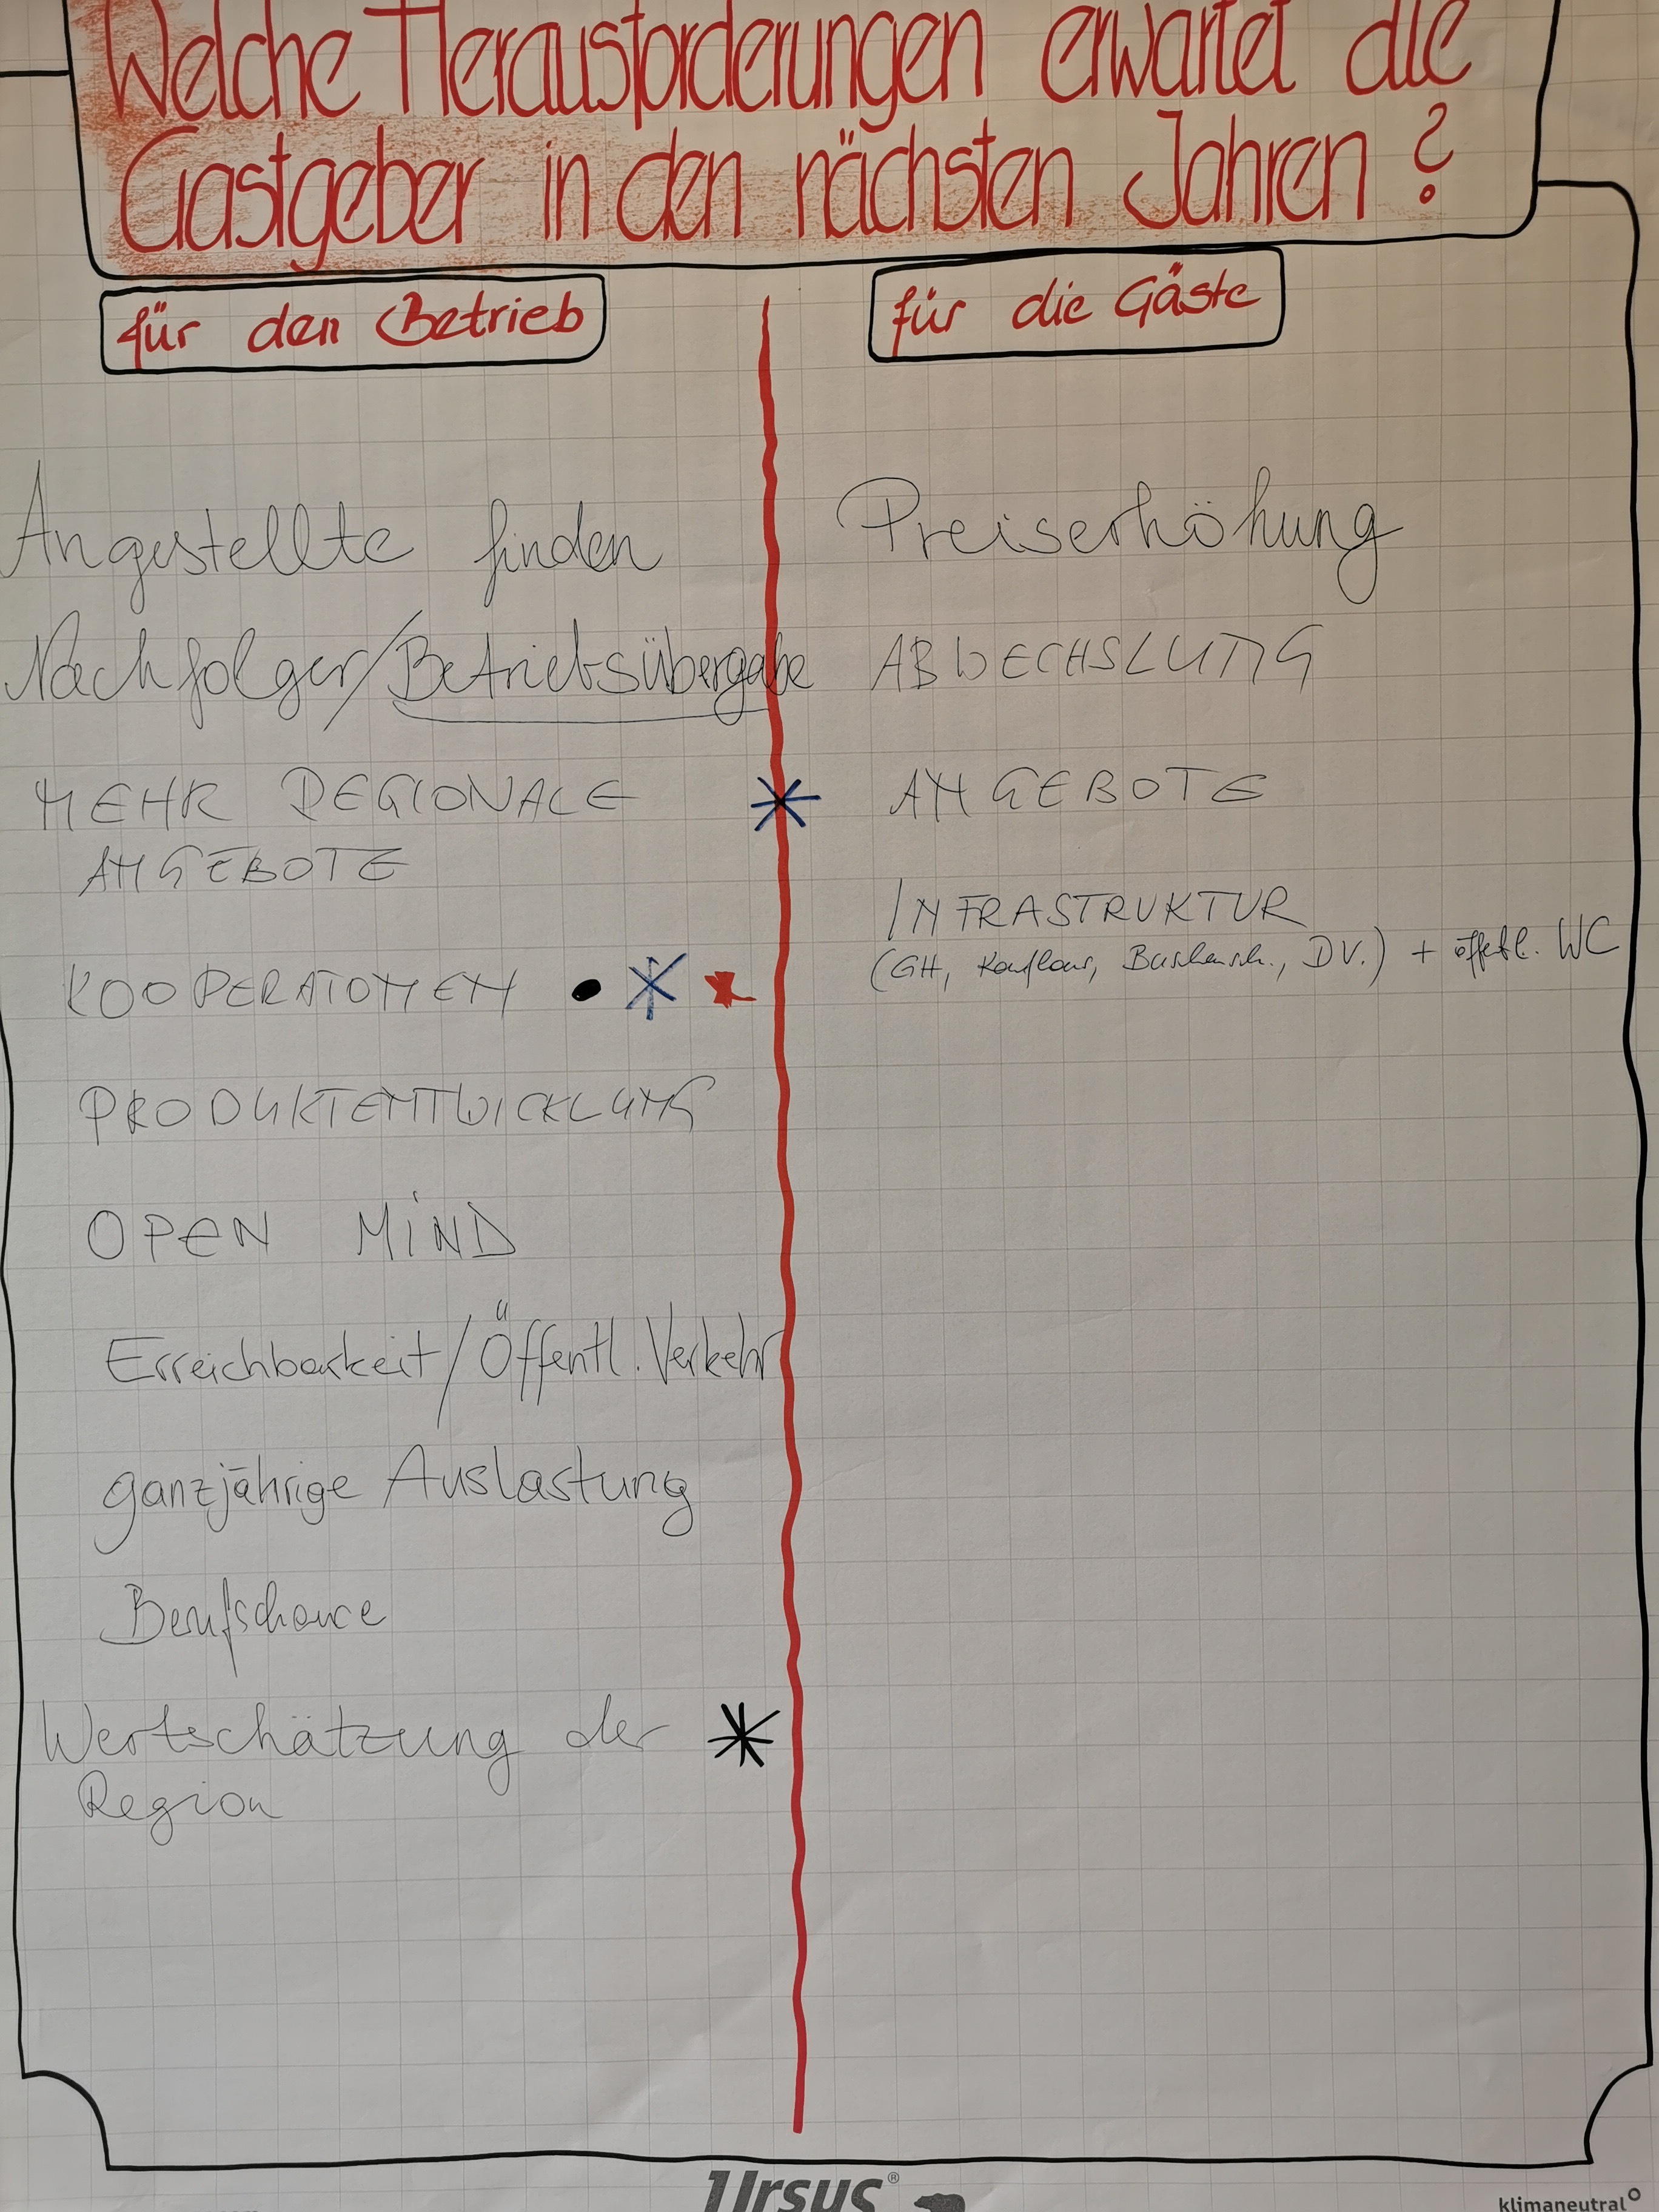 Welche Herausforderungen erwartet die
Gastgeber in den nächsten Jahren ?
für den Betrieb
Angestellte finden
Nachfolger/Betriebsübergabe
MEHR REGIONALE
ANGEBOTE
KOOPERATIONEN
PRODUKTENTWICKLUNG
OPEN MiND
Erreichbarkeit/Öffentl. Verkehr
ganzjährige Auslastung
Berufschance
Wertschätzung der
Region
für die Gäste
Preiserhöhung
ABWECHSLUNG
ANGEBOTE
INFRASTRUKTUR
(GH, Kaufhaus, Buschensch., DV.) + öffetl. WC
Ursus®
klimaneutral